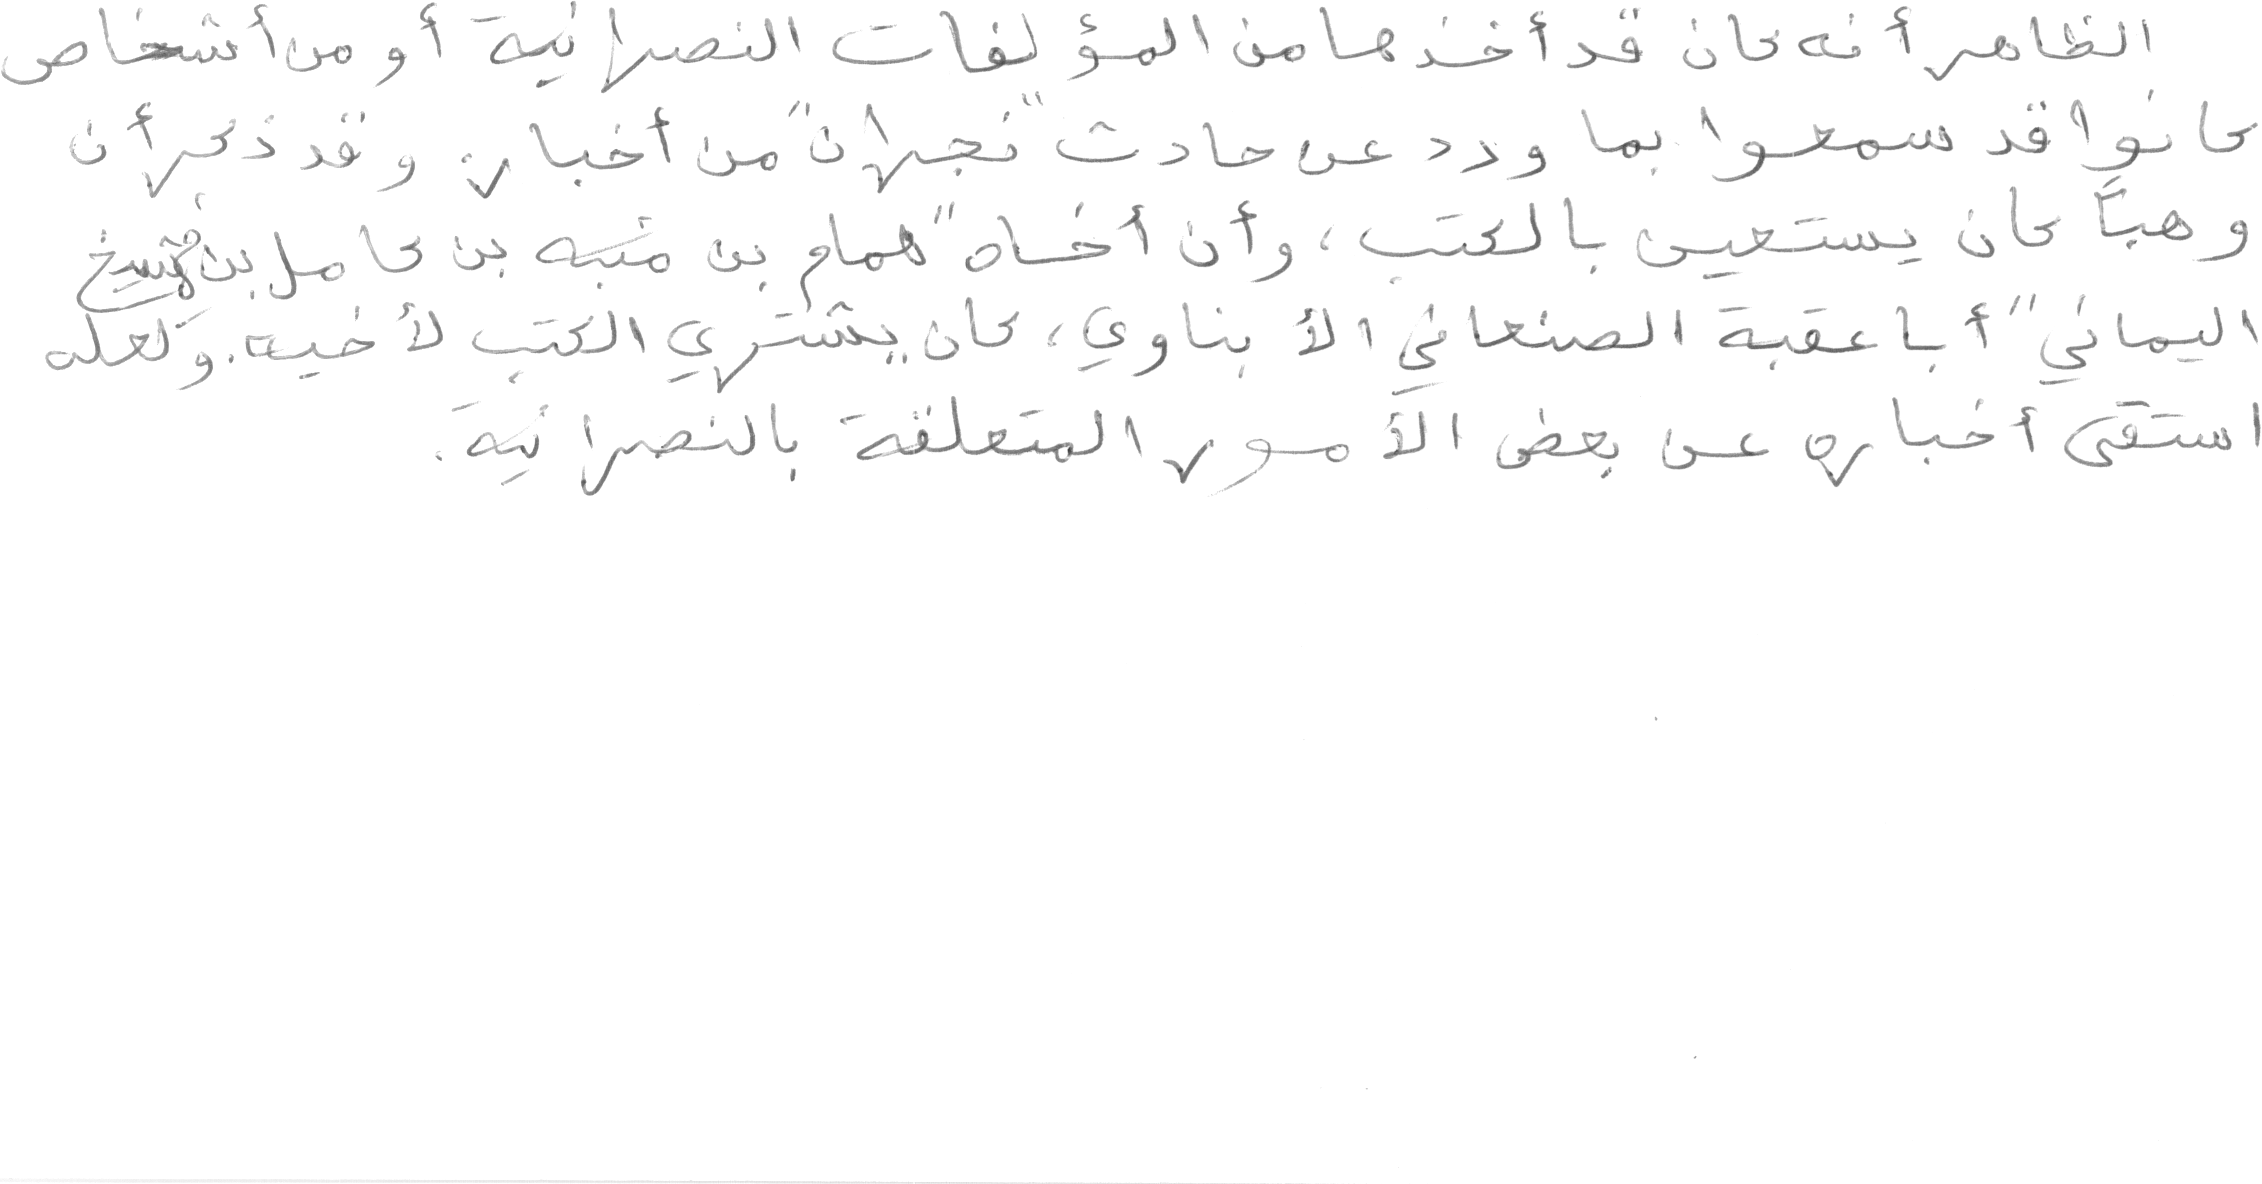 الظاهر أنه كان قد أخذها من المؤلفات النصرانية أو من أشخاص
كانوا قد سمعوا بما ورد عن حادث "نجران" من أخبار. وقد ذكر أن
وهباً كان يستعين بالكتب، وأن أخاه "همام بن منبه بن كامل بن
اليماني" أبا عقبة الصنعاني الأبناوي، كان يشتري الكتب لأخيه. ولعله
استقى أخباره عن بعض الأمور المتعلقة بالنصرانية.